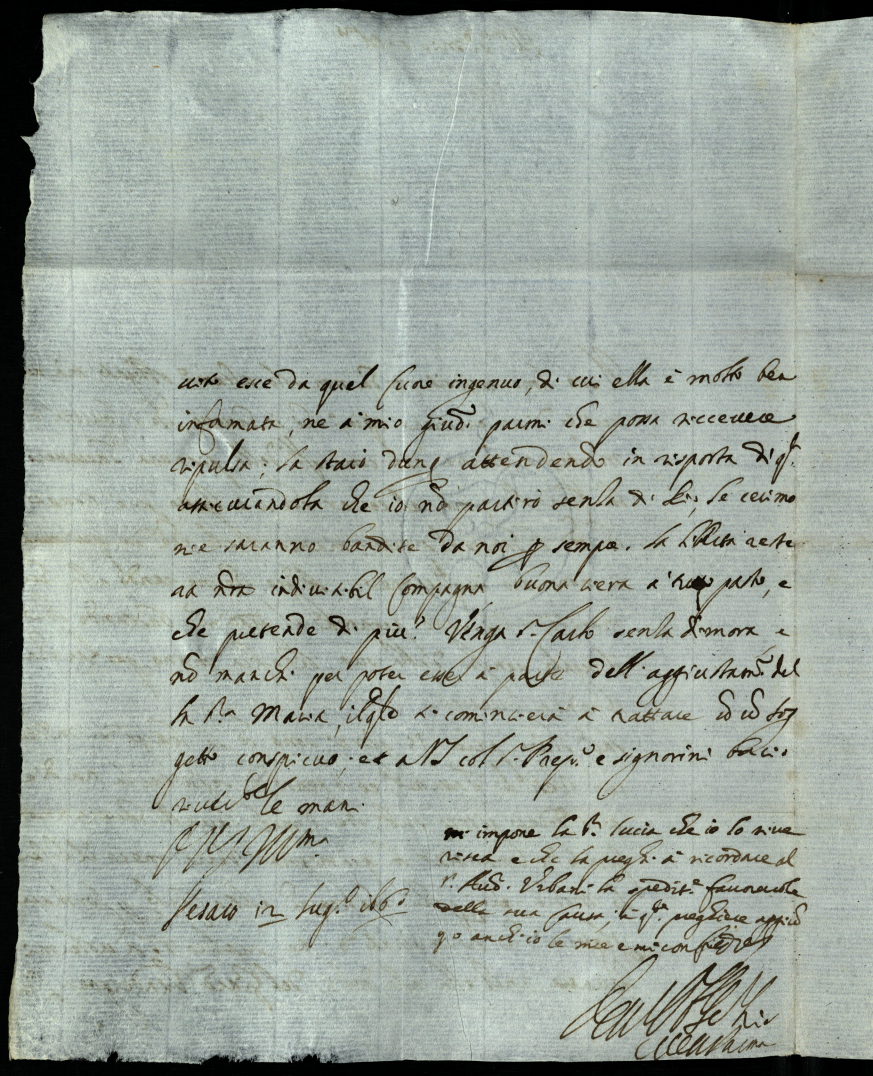 uito esce da quel Cuore ingenuo, di cui ella è molto ben
informata, ne à mio giud.º parmi che possa riccevere
ripulsa; la starò dunq attendendo in risposta di q.ta
assicurandola che io nō partirò senza di Lei, le cerimo
nie saranno bandite da noi p sempre. la
nrā indivisibil Compagna buona ciera à tutto pasto, e
che pretende di più? Venga S.r Carlo senza dimora, e
nō manchi per poter esser à parte dell'aggiustam.to del
la S.ra Maria, il qlē si comincierà à trattare cō cō sog
getto conspicuo; et a VS col S.r e signorini bacio
le mani
DVS Illma
Pesaro 12 lug.º
mi impone la S.ra lucia che io lo rive
risca e che la preghi à ricordare al
S.r Aud. Urbani la spedit.e favorevole
della sua Causa, à q.te preghiere aggiū
go anch'io le mie e mi confermo